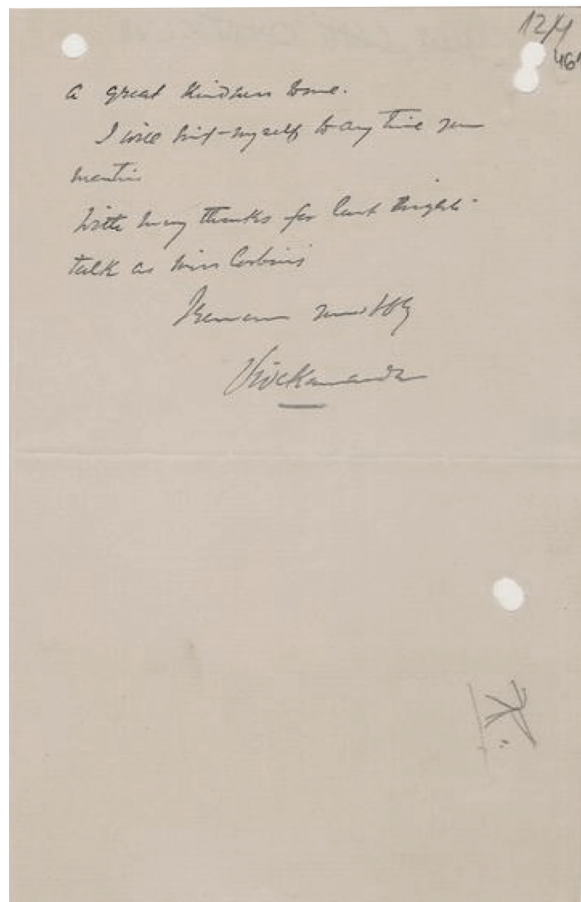 12/4
46
a great kindness to me.
I will suit myself to any time you
mention
With many thanks for last night's
talk at Miss Corbin's
I remain yours ttly
Vivekananda
K.